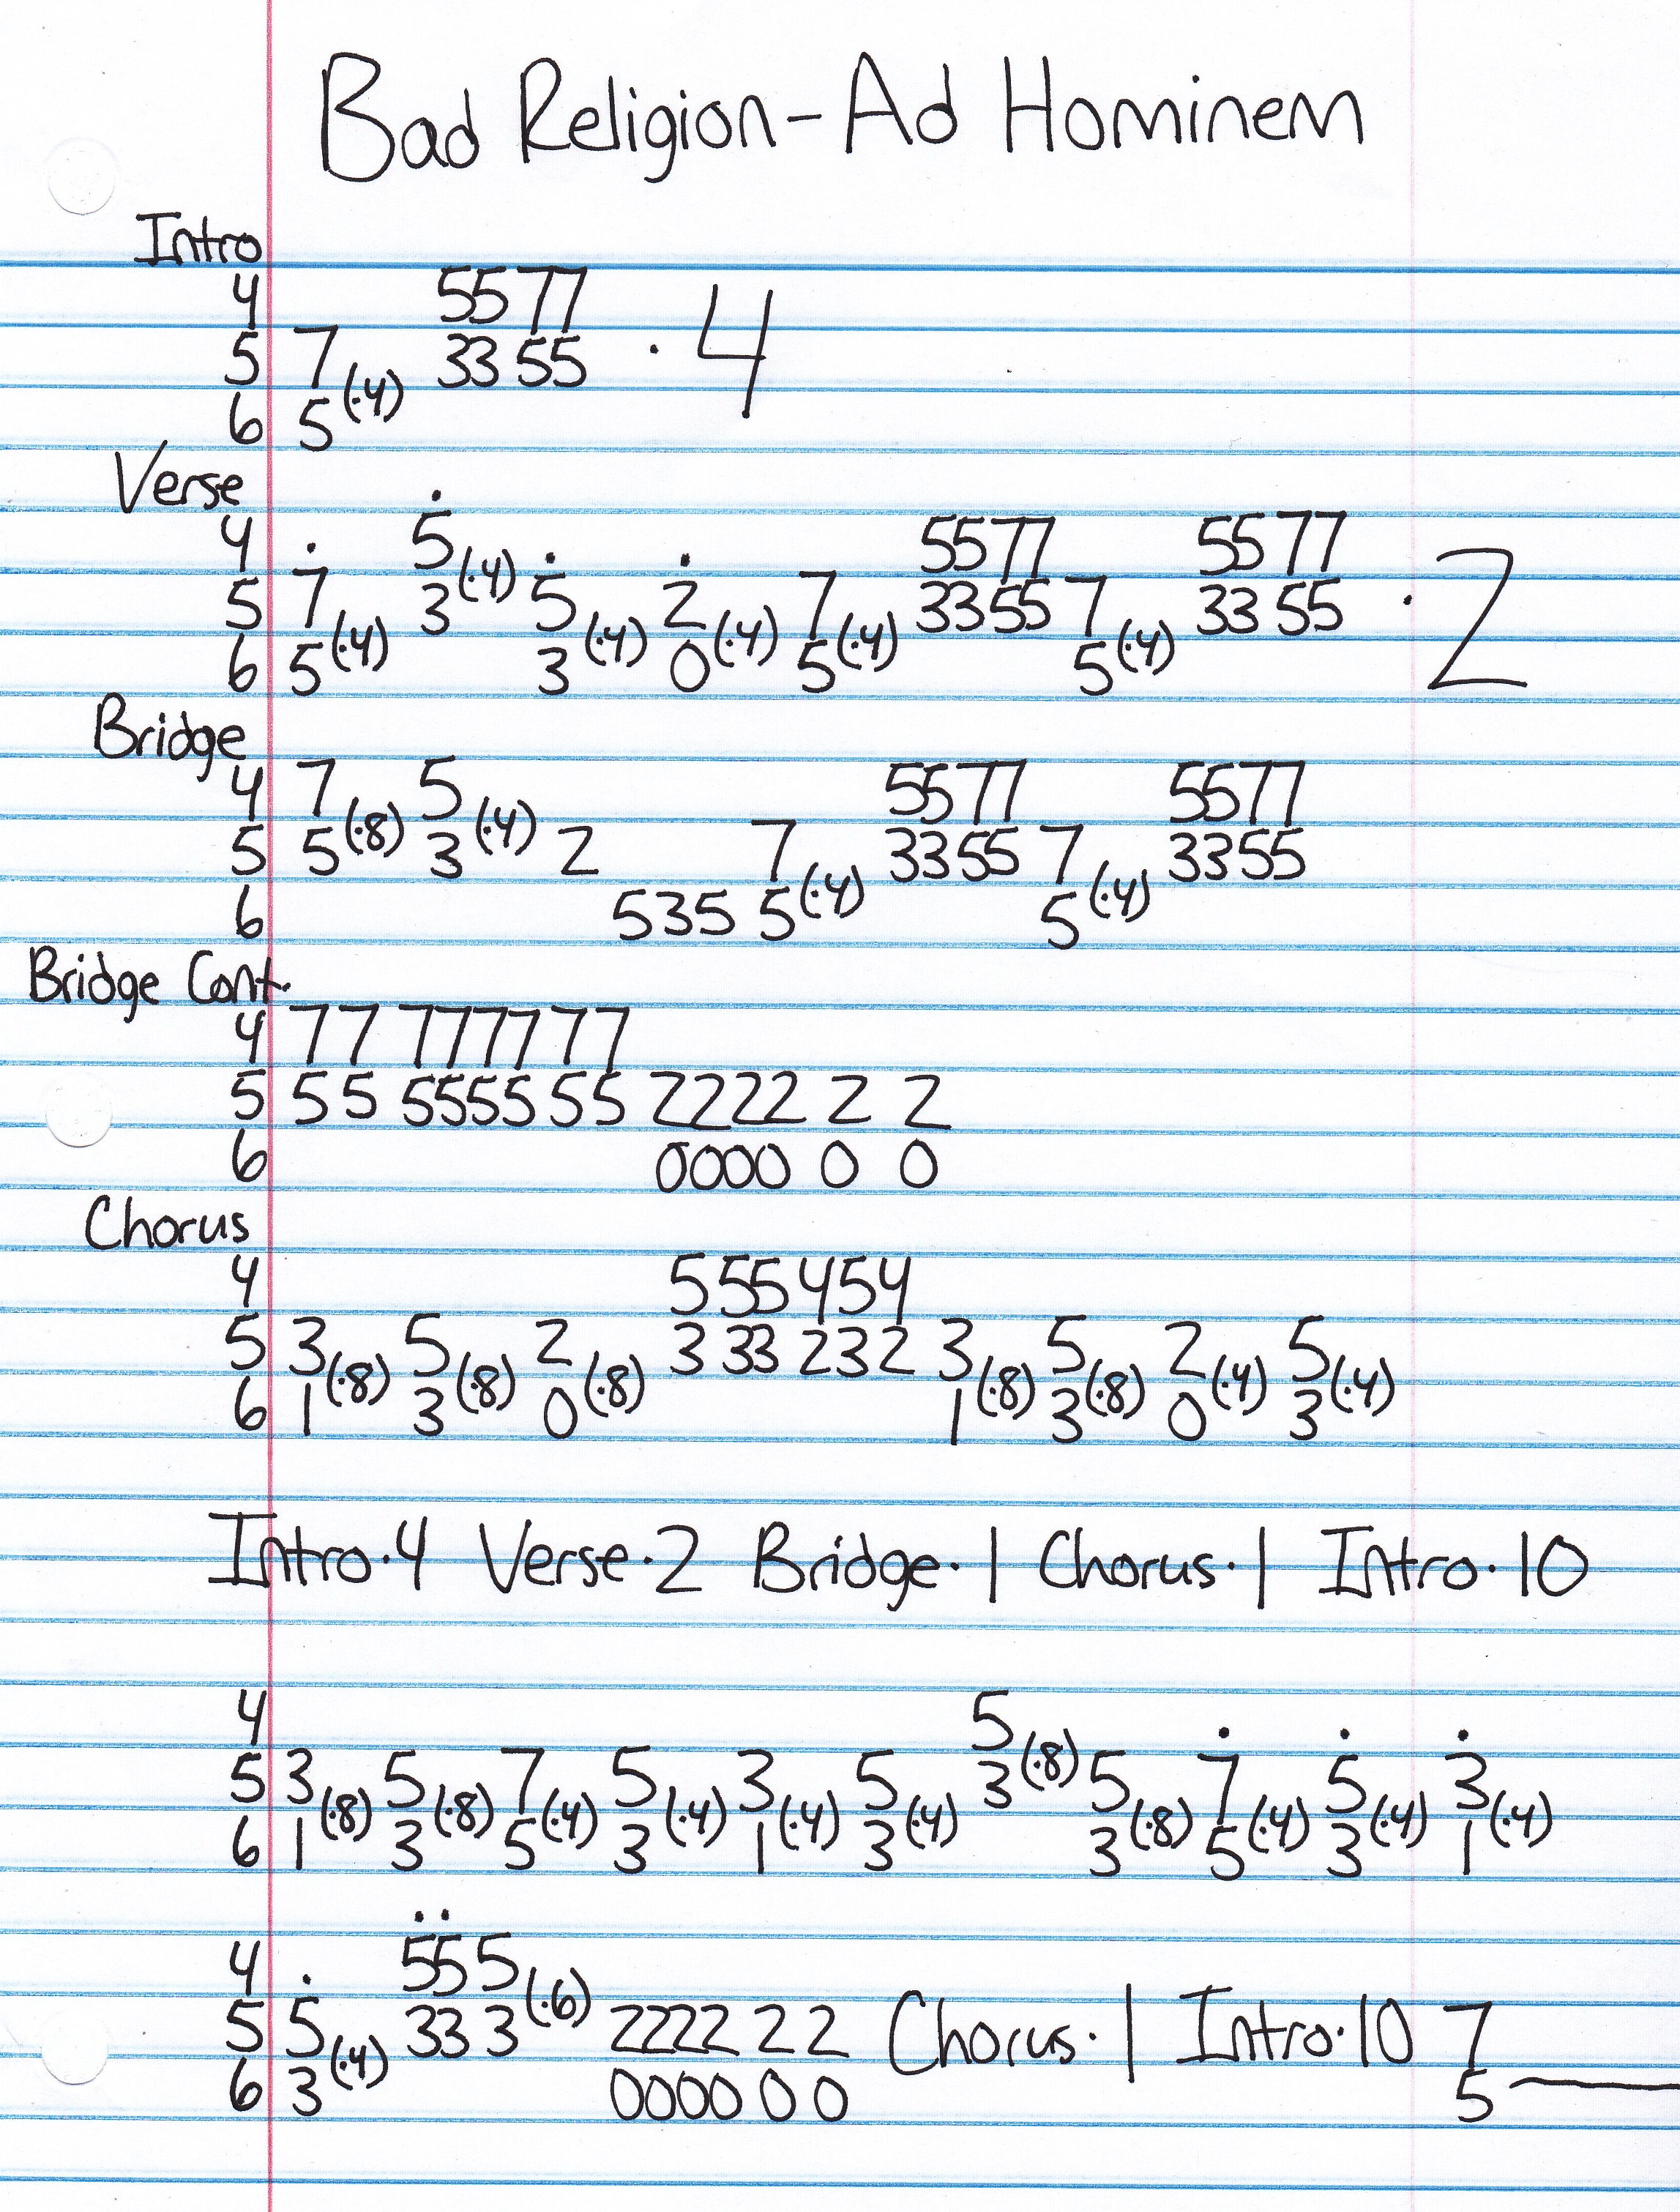 Bad Religion - Ad Hominem
Intro
4 55 77
5 7 (·4) 33 55 · 4
6 5
Verse
4 5 (·4) 5577 55 77
5 7 (·4) 3 5 (·4) 2 (·4) 7 (·4) 3355 7 (·4) 33 55 · 2
6 5 3 0 5 5
Bridge
4 7 (·8) 5 (·4) 5577 5577
5 5 3 2 7 (·4) 3355 7 (·4) 3355
6 535 5 5
Bridge Cont.
4 77 7777 77
5 55 5555 55 2222 2 2
6 0000 0 0
Chorus
4 5 55 454
5 3 (·8) 5 (·8) 2 (·8) 3 33 232 3 (·8) 5 (·8) 2 (·4) 5 (·4)
6 1 3 0 1 3 0 3
Intro·4 Verse·2 Bridge·1 Chorus·1 Intro·10
4 5 (·8)
5 3 (·8) 5 (·8) 7 (·4) 5 (·4) 3 (·4) 5 (·4) 3 5 (·8) 7 (·4) 5 (·4) 3 (·4)
6 1 3 5 3 1 3 3 5 3 1
4 55 5 (·6)
5 5 (·4) 33 3 2222 2 2 Chorus·1 Intro·10 7
6 3 0000 0 0 5